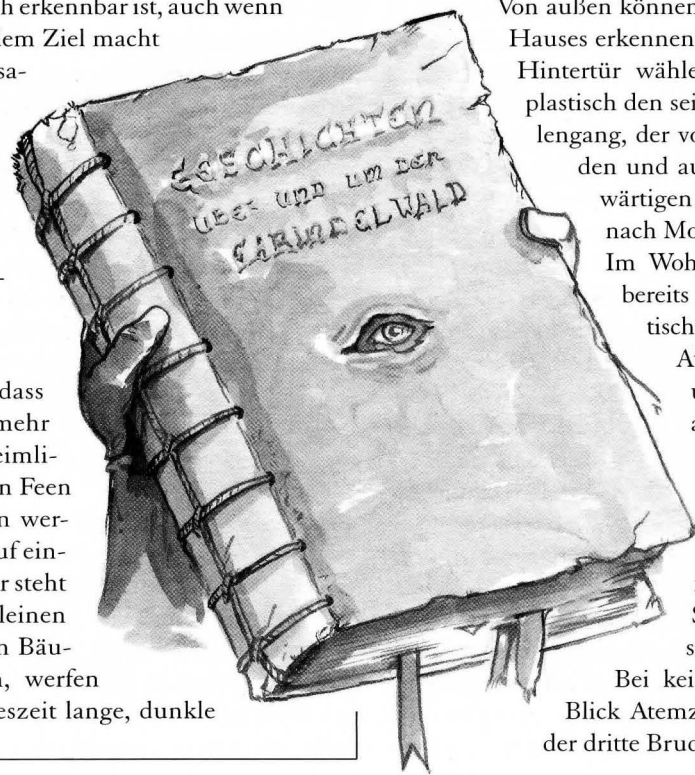 h erkennbar ist, auch wenn
dem Ziel macht
sa-
-
dass
mehr
eimli-
n Feen
n wer-
uf ein-
r steht
leinen
n Bäu-
n, werfen
eszeit lange, dunkle
GESCHICHTEN
ÜBER UND UM DEN
FARINDELWALD
Von außen können
Hauses erkennen
Hintertür wähle
plastisch den sei
lengang, der vo
den und au
wärtigen
nach Mo
Im Woh
bereits
tisch
A
u
a
S
s
Bei kei
Blick Atemz
der dritte Bruc